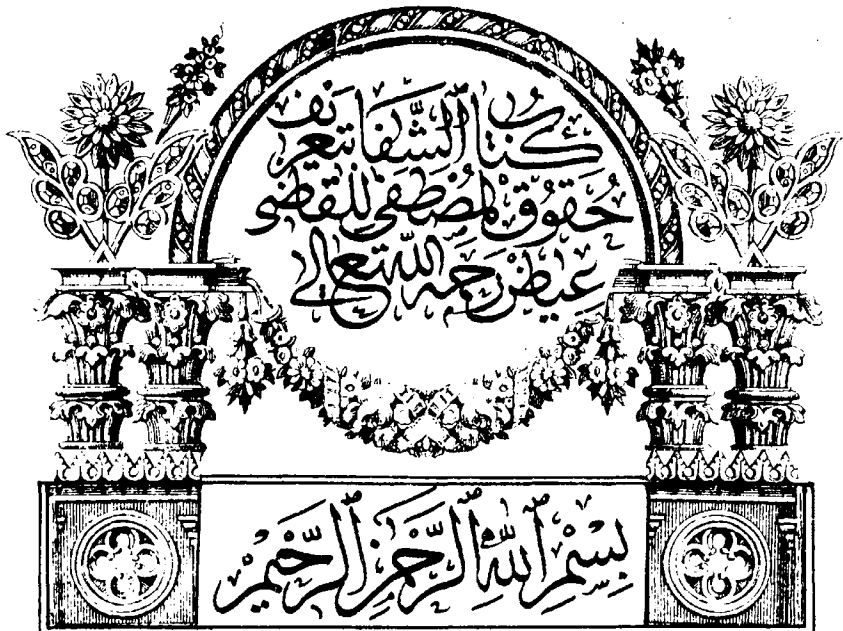 كتاب الشفا بتعريف
حقوق المصطفى للقاضي
عياض رحمه الله تعالى
بسم الله الرحمن الرحيم